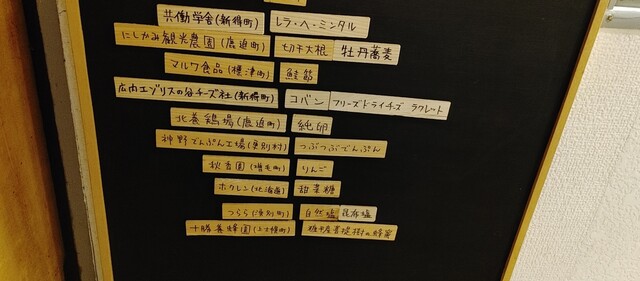 共働学舎(新得町) レラ・ヘ・ミンタル
にしかみ観光農園(鹿追町) 切干大根 牡丹蕎麦
マルワ食品(標津町) 鮭節
広内エゾリスの谷チーズ社(新得町) コバン フリーズドライチーズ ラクレット
北養鶏場(鹿追町) 純卵
神野でんぷん工場(更別村) つぶつぶでんぷん
秋香園(増毛町) りんご
ホクレン(北海道) 甜菜糖
つらら(浜別町) 自然塩 昆布塩
十勝養蜂園(上士幌町) 菩提樹の蜂蜜